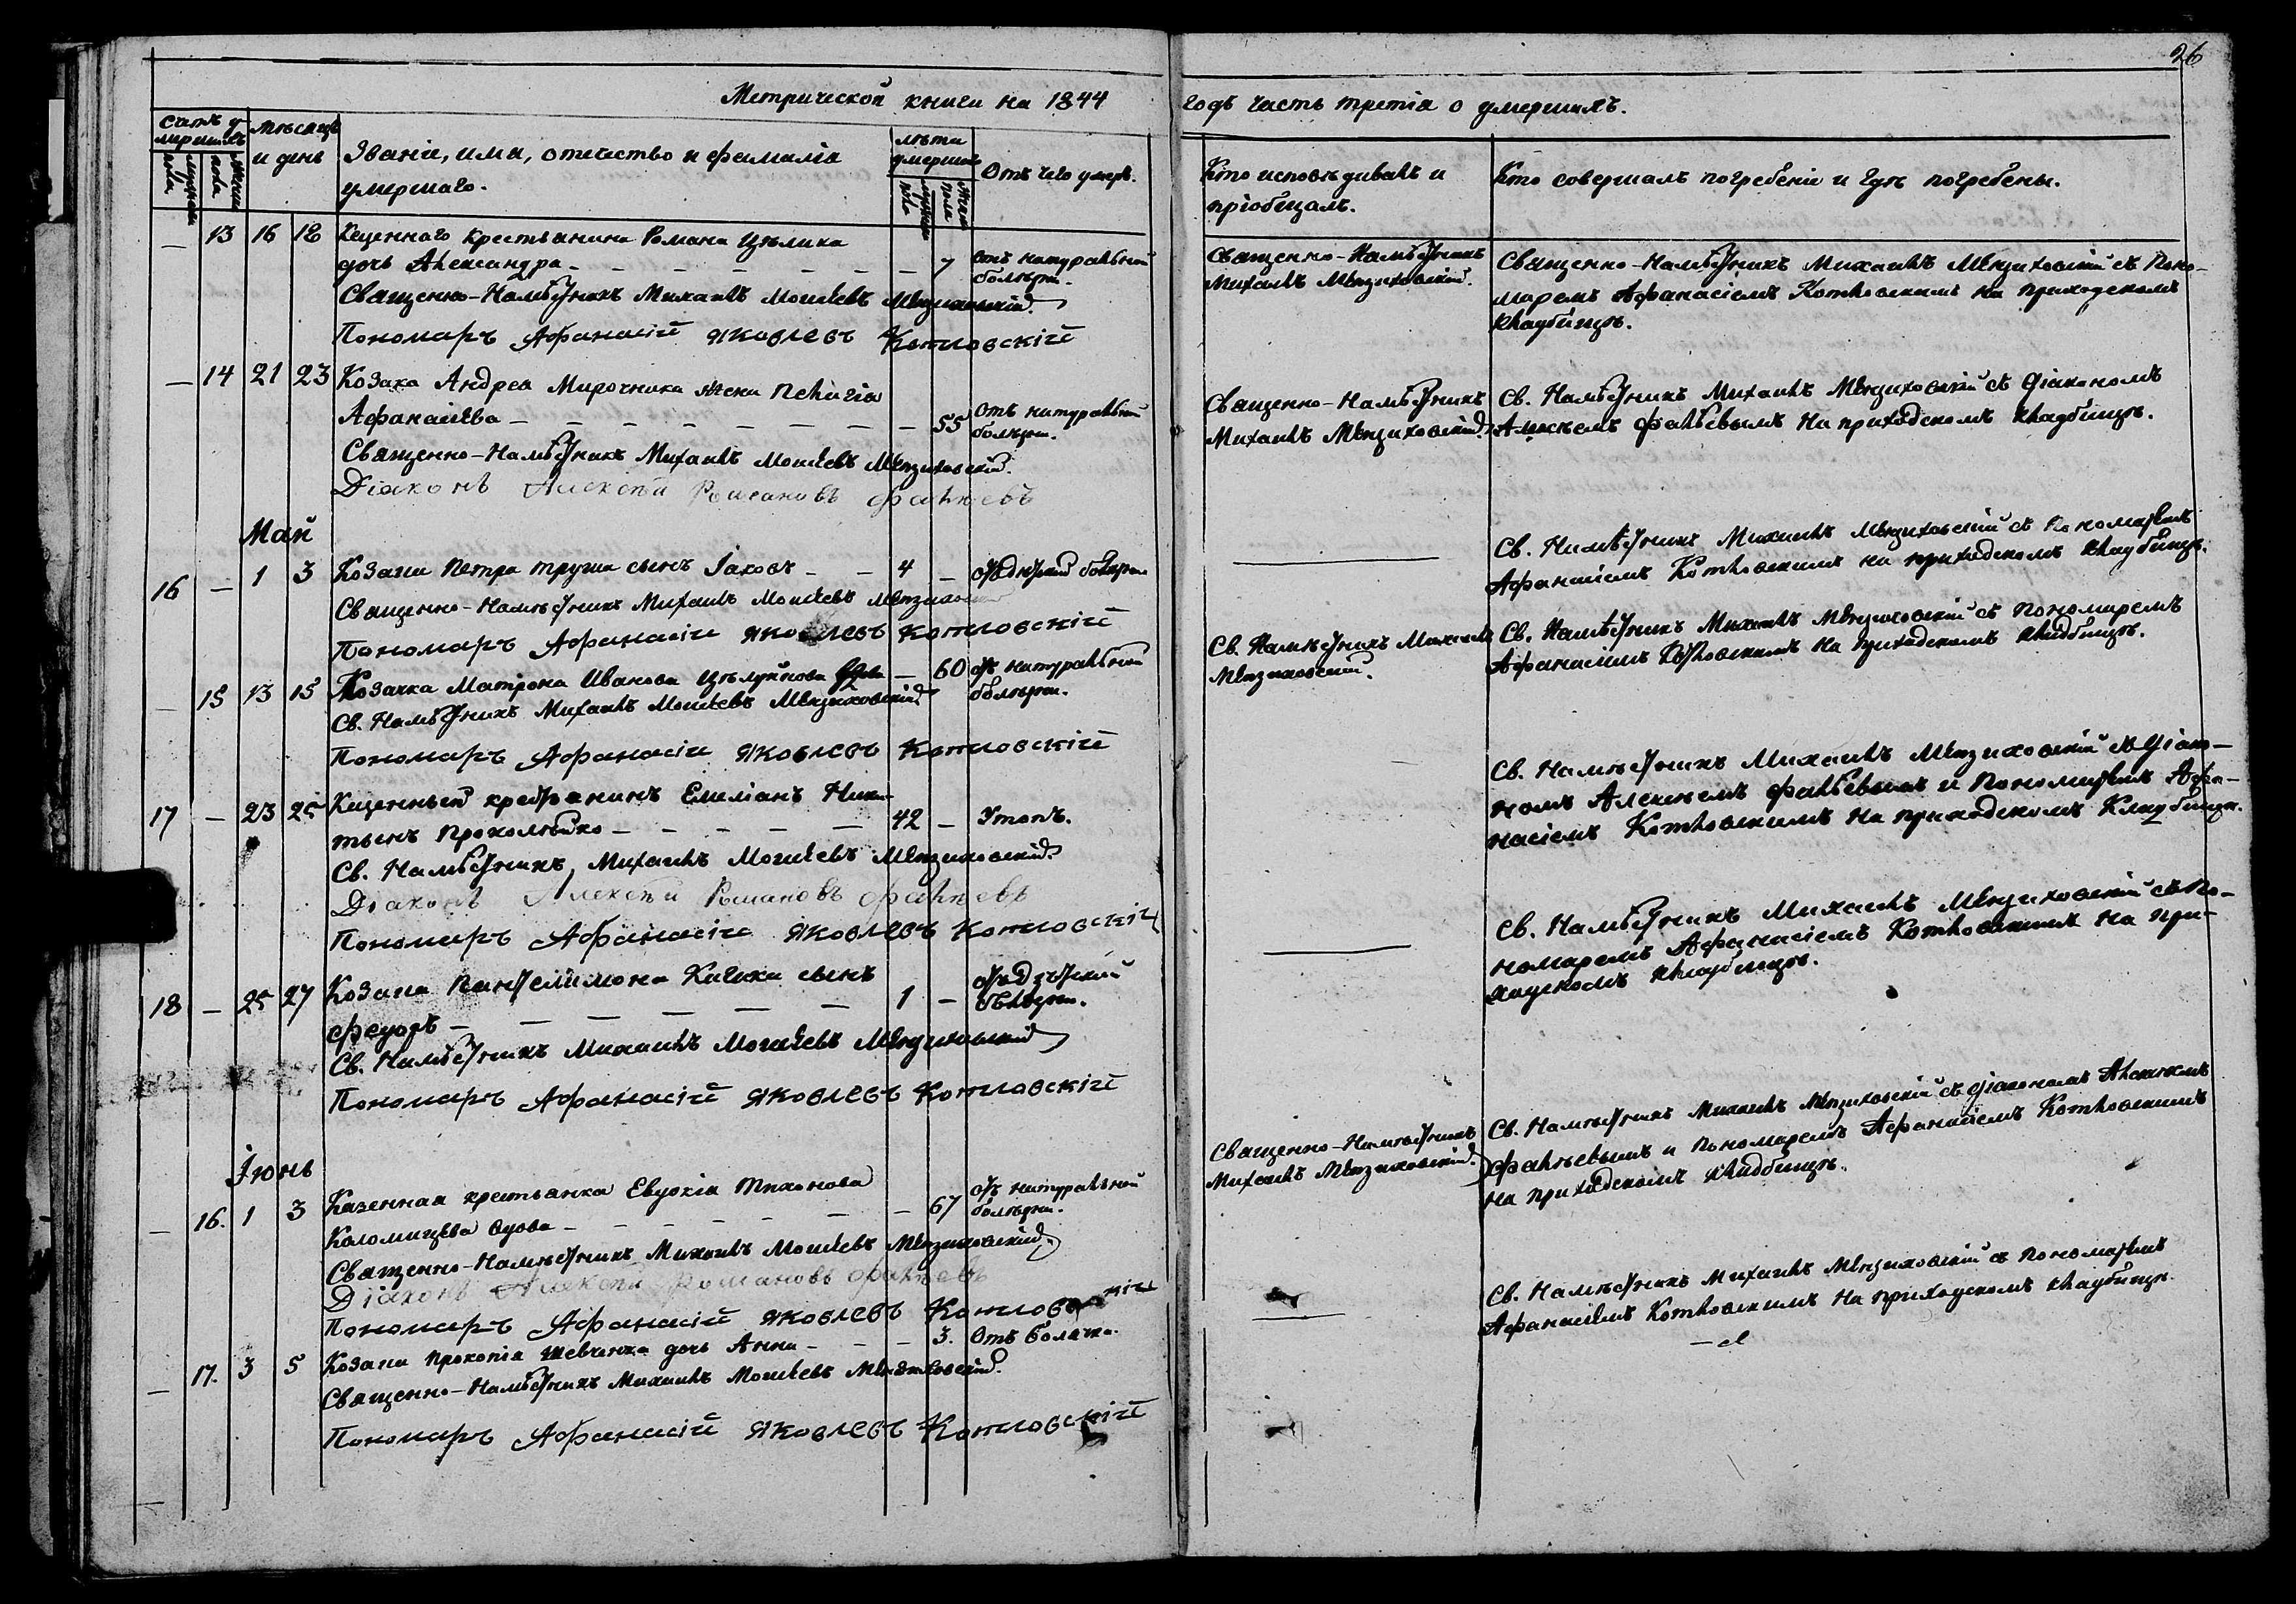 26
Метрической книги на 1844 годъ часть третія о умершихъ.
Счетъ умершихъ
мужеска пола
женска пола
Мѣсяцъ и день
Званіе, имя, отечество и фамилія
умершаго.
лѣта умершаго
мужеска пола
женска пола
Отъ чего умеръ.
Кто исповѣдивалъ и
пріобщалъ.
Кто совершалъ погребеніе и гдѣ погребены.
— 13 16 18 Крестьянина Романа Цѣлика
дочь Александра — — 7 Отъ натуральной
болѣзни.
Священно-Намѣстникъ Михаилъ Моисѣевъ Мензиховскій.
Пономарь Афанасій Яковлевъ Котловскій
Священно-Намѣстникъ
Михаилъ Мензиховскій.
Священно-Намѣстникъ Михаилъ Мензиховскій съ Поно-
маремъ Афанасіемъ Котловскимъ на приходскомъ
кладбищѣ.
— 14 21 23 Козака Андрея Мирочника жена Пелагія
Афанасіева — — 55 Отъ натуральной
болѣзни.
Священно-Намѣстникъ Михаилъ Моисѣевъ Мензиховскій.
Діаконъ Алексѣй Романовъ Фалѣевъ
Священно-Намѣстникъ
Михаилъ Мензиховскій.
Св. Намѣстникъ Михаилъ Мензиховскій съ Діакономъ
Алексѣемъ Фалѣевымъ на приходскомъ кладбищѣ.
Май
16 — 1 3 Козака Петра сынъ Іаковъ — — 4 —
Священно-Намѣстникъ Михаилъ Моисѣевъ
Пономарь Афанасій Яковлевъ Котловскій
Св. Намѣстникъ Михаилъ Мензиховскій съ Пономаремъ
Афанасіемъ Котловскимъ на приходскомъ кладбищѣ.
— 15 13 15 Козачка Матрона Иванова — 60 отъ натуральной
болѣзни.
Св. Намѣстникъ Михаилъ Моисѣевъ Мензиховскій
Пономарь Афанасій Яковлевъ Котловскій
Св. Намѣстникъ Михаилъ
Мензиховскій.
Св. Намѣстникъ Михаилъ Мензиховскій съ Пономаремъ
Афанасіемъ Котловскимъ на приходскомъ кладбищѣ.
17 — 23 25 Емеліанъ Ники-
тынъ — — 42 — Утопъ.
Св. Намѣстникъ Михаилъ Моисѣевъ Мензиховскій.
Діаконъ Алексѣй Романовъ Фалѣевъ
Пономарь Афанасій Яковлевъ Котловскій
Св. Намѣстникъ Михаилъ Мензиховскій съ Діако-
номъ Алексѣемъ Фалѣевымъ и Пономаремъ Афа-
насіемъ Котловскимъ на приходскомъ Кладбищѣ.
18 — 25 27 Козака Пантелимона сынъ
Федоръ — — 1 — отъ Дѣтской
болѣзни.
Св. Намѣстникъ Михаилъ Моисѣевъ Мензиховскій
Пономарь Афанасій Яковлевъ Котловскій
Св. Намѣстникъ Михаилъ Мензиховскій съ По-
номаремъ Афанасіемъ Котловскимъ на при-
ходскомъ кладбищѣ.
Іюнь
— 16. 1 3 Казенная крестьянка Евдокія Тихонова
Коломицева вдова — — 67 отъ натуральной
болѣзни.
Священно-Намѣстникъ Михаилъ Моисѣевъ Мензиховскій.
Діаконъ Алексѣй Романовъ Фалѣевъ
Пономарь Афанасій Яковлевъ Котловскій
Священно-Намѣстникъ
Михаилъ Мензиховскій.
Св. Намѣстникъ Михаилъ Мензиховскій съ діакономъ Алексѣемъ
Фалѣевымъ и Пономаремъ Афанасіемъ Котловскимъ
на приходскомъ кладбищѣ.
— 17. 3 5 Козака Прокопія Шевченка дочь Анна — — 3. Отъ
Священно-Намѣстникъ Михаилъ Моисѣевъ Мензиховскій.
Пономарь Афанасій Яковлевъ Котловскій
Св. Намѣстникъ Михаилъ Мензиховскій съ Пономаремъ
Афанасіемъ Котловскимъ на приходскомъ кладбищѣ.